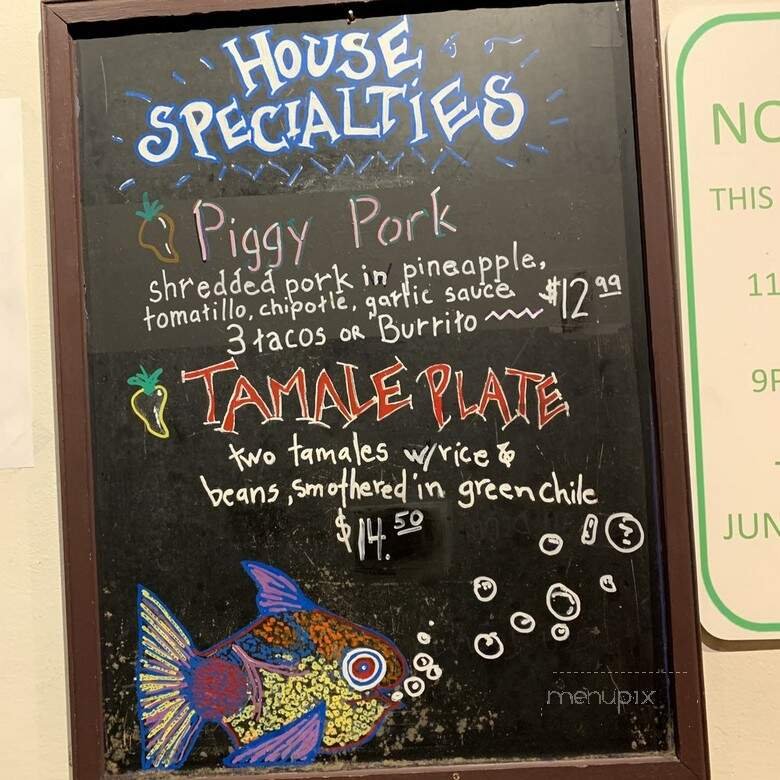 HOUSE
SPECIALTIES
Piggy Pork
shredded pork in pineapple,
tomatillo, chipotle, garlic sauce $12.99
3 tacos OR Burrito
TAMALE PLATE
two tamales w/rice &
beans, smothered in green chile
$14.50
menupix
NO
THIS
11
9P
JUN